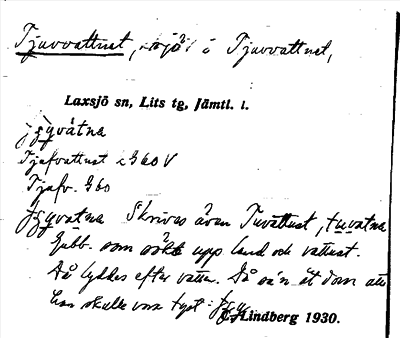 Tjuvvattnet, sjö i Tjuvvattnet,
Laxsjö sn, Lits tg, Jämtl. l.
Tjufvattnet G60V
Tjufv. G60
Skrivas även Tuvattnet, tuvatna
Gubb. som sökt upp land och vattnet.
Då lyddes efter vatten. Då sa'n åt dom att
han skulle vara tyst:
Lindberg 1930.